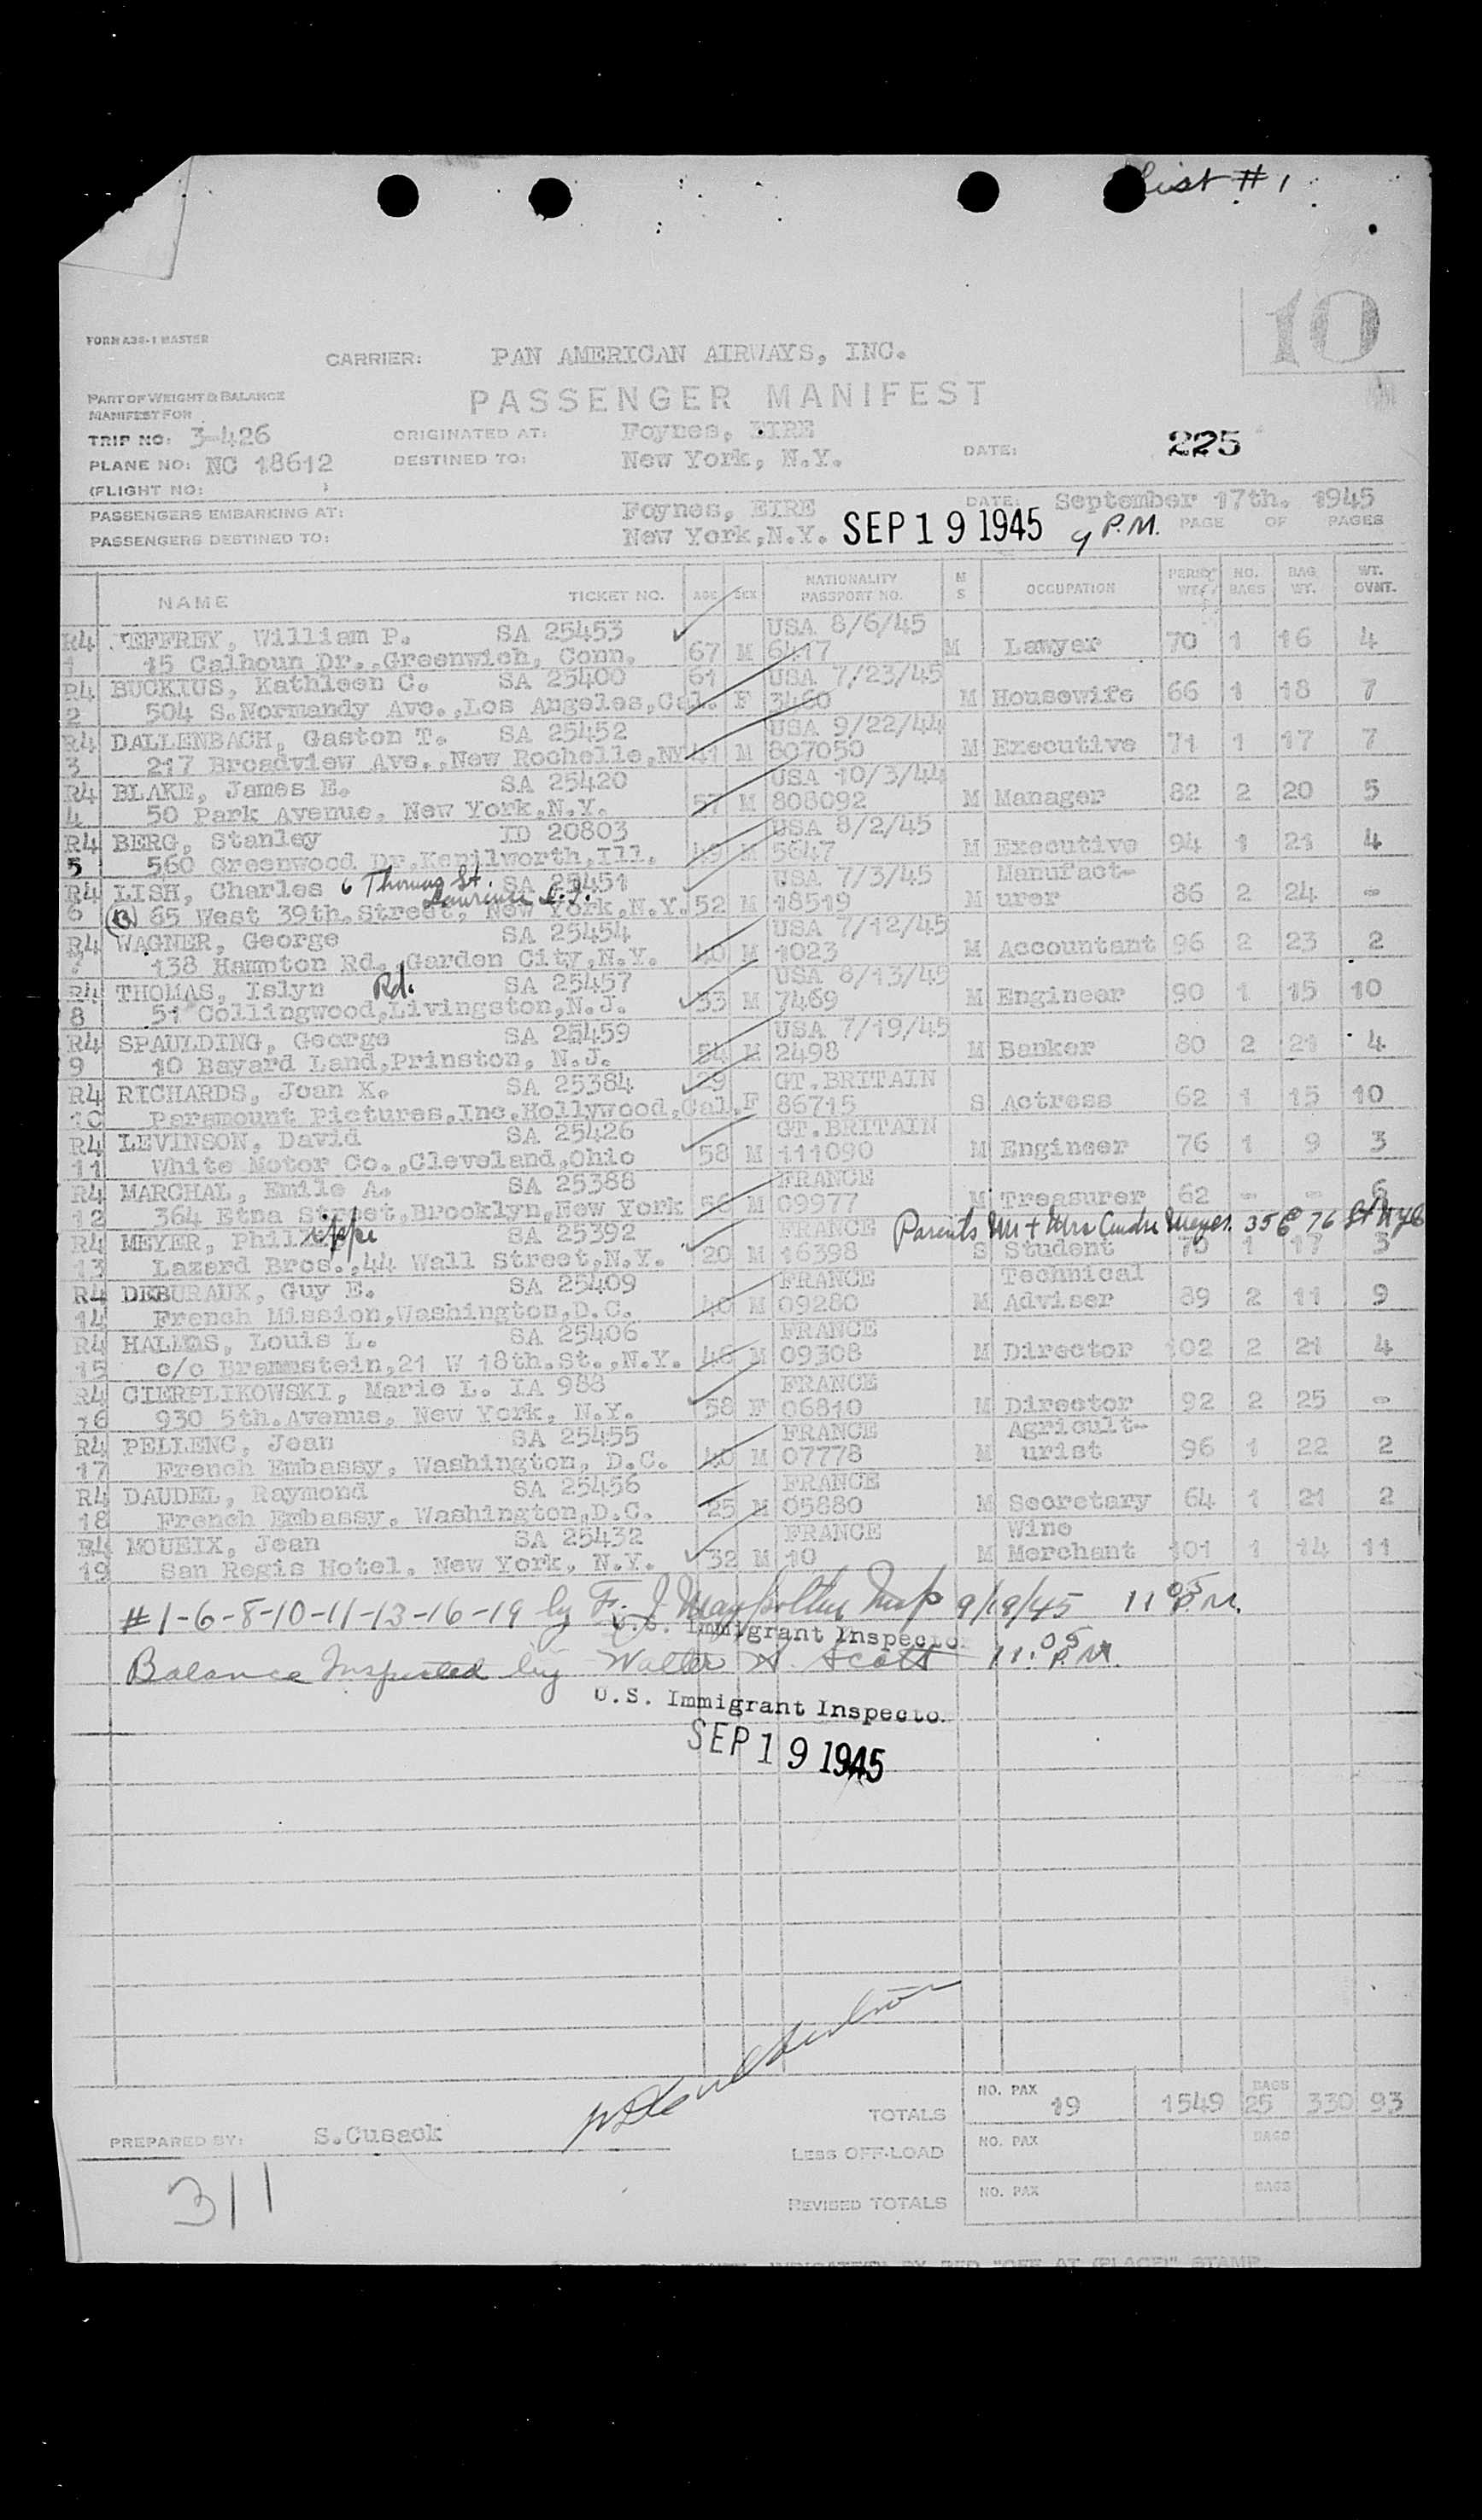 List # 1
10
FORM A38-1 MASTER
CARRIER: PAN AMERICAN AIRWAYS, INC.
PART OF WEIGHT & BALANCE
MANIFEST FOR
PASSENGER MANIFEST
TRIP NO: 3-426 ORIGINATED AT: Foynes, EIRE
PLANE NO: NC 18612 DESTINED TO: New York, N.Y. DATE: 225
(FLIGHT NO: )
PASSENGERS EMBARKING AT: Foynes, EIRE DATE: September 17th. 1945
PASSENGERS DESTINED TO: New York,N.Y. SEP 19 1945 9 P.M. PAGE OF PAGES
NAME TICKET NO. AGE SEX NATIONALITY PASSPORT NO. M S OCCUPATION NO. BAGS BAG WT. WT. OVNT.
R4 JEFFREY, William P. SA 25453 USA 8/6/45
1 15 Calhoun Dr.,Greenwich, Conn. 67 M 6417 M Lawyer 70 1 16 4
R4 BUCKIUS, Kathleen C. SA 25400 61 USA 7/23/45
2 504 S.Normandy Ave.,Los Angeles,Cal. F 3460 M Housewife 66 1 18 7
R4 DALLENBACH, Gaston T. SA 25452 USA 9/22/44
3 217 Broadview Ave.,New Rochelle,NY 41 M 807050 M Executive 71 1 17 7
R4 BLAKE, James E. SA 25420 USA 10/3/44
4 50 Park Avenue, New York,N.Y. 57 M 808092 M Manager 82 2 20 5
R4 BERG, Stanley ID 20803 USA 8/2/45
5 560 Greenwood Dr.Kenilworth,Ill. 49 M 5647 M Executive 94 1 21 4
R4 LISH, Charles 6 Thomas St. SA 25451 USA 7/3/45 Manufact-
Laurence L.I.
6 (B) 65 West 39th.Street, New York,N.Y. 52 M 18519 M urer 86 2 24 -
R4 WAGNER, George SA 25454 USA 7/12/45
7 138 Hampton Rd. Garden City,N.Y. 40 M 1023 M Accountant 96 2 23 2
R4 THOMAS, Islyn Rd. SA 25457 USA 8/13/45
8 51 Collingwood,Livingston,N.J. 33 M 7469 M Engineer 90 1 15 10
R4 SPAULDING, George SA 25459 USA 7/19/45
9 10 Bayard Land,Prinston, N.J. 54 M 2498 M Banker 80 2 21 4
R4 RICHARDS, Joan X. SA 25384 29 GT.BRITAIN
10 Paramount Pictures,Inc.Hollywood,Cal. F 86715 S Actress 62 1 15 10
R4 LEVINSON, David SA 25426 GT.BRITAIN
11 White Motor Co.,Cleveland,Ohio 58 M 111090 M Engineer 76 1 9 3
R4 MARCHAL, Emile A. SA 25388 FRANCE
12 364 Etna Street,Brooklyn,New York 56 M 09977 M Treasurer 62 - - 6
R4 MEYER, Philippe SA 25392 FRANCE Parents Mr + Mrs Andre Meyer. 35 E 76 St NYC
13 Lazard Bros.,44 Wall Street,N.Y. 20 M 16398 S Student 70 1 17 3
R4 DEBURAUX, Guy E. SA 25409 FRANCE Technical
14 French Mission,Washington,D.C. 40 M 09280 M Adviser 89 2 11 9
R4 HALMOS, Louis L. SA 25406 FRANCE
15 c/o Bremmstein,21 W 18th.St.,N.Y. 46 M 09308 M Director 102 2 21 4
R4 CIERPLIKOWSKI, Marie L. IA 988 FRANCE
16 930 5th.Avenue, New York, N.Y. 58 F 06810 M Director 92 2 25 -
R4 PELLENC, Jean SA 25455 FRANCE Agricult-
17 French Embassy, Washington, D.C. 40 M 07778 M urist 96 1 22 2
R4 DAUDEL, Raymond SA 25456 FRANCE
18 French Embassy, Washington,D.C. 25 M 05880 M Secretary 64 1 21 2
R4 MOUEIX, Jean SA 25432 FRANCE Wine
19 San Regis Hotel, New York, N.Y. 32 M 10 M Merchant 101 1 14 11
#1-6-8-10-11-13-16-19 by F. J. Insp 9/19/45 11 05 P.M.
U.S. Immigrant Inspector
Balance Inspected by Walter A. Scott 11:05 P.M.
U.S. Immigrant Inspecto.
SEP 19 1945
TOTALS NO. PAX 19 1549 BAGS 25 330 93
PREPARED BY: S.Cusack
LESS OFF-LOAD NO. PAX BAGS
REVISED TOTALS NO. PAX BAGS
311
BY RED "OFF AT (PLACE)" STAMP